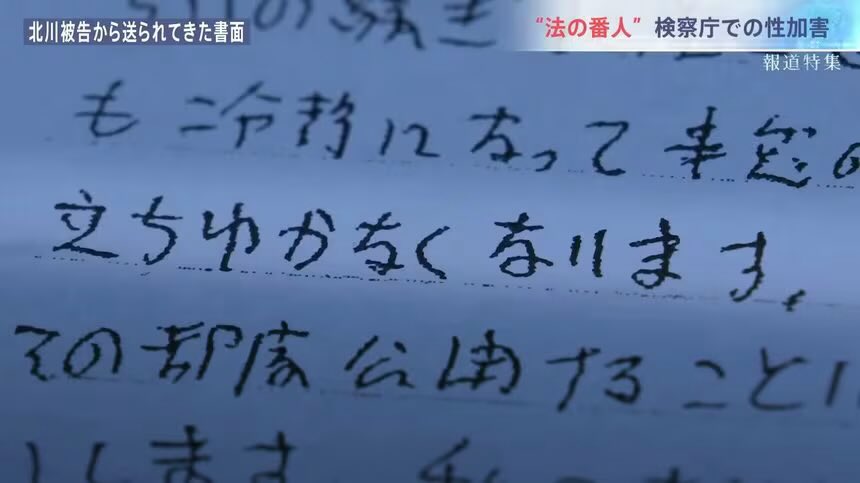 北川被告から送られてきた書面
“法の番人” 検察庁での性加害
報道特集
の騒ぎ
も冷静になって事態の
立ちゆかなくなります。
その都度公開することに
します 私の